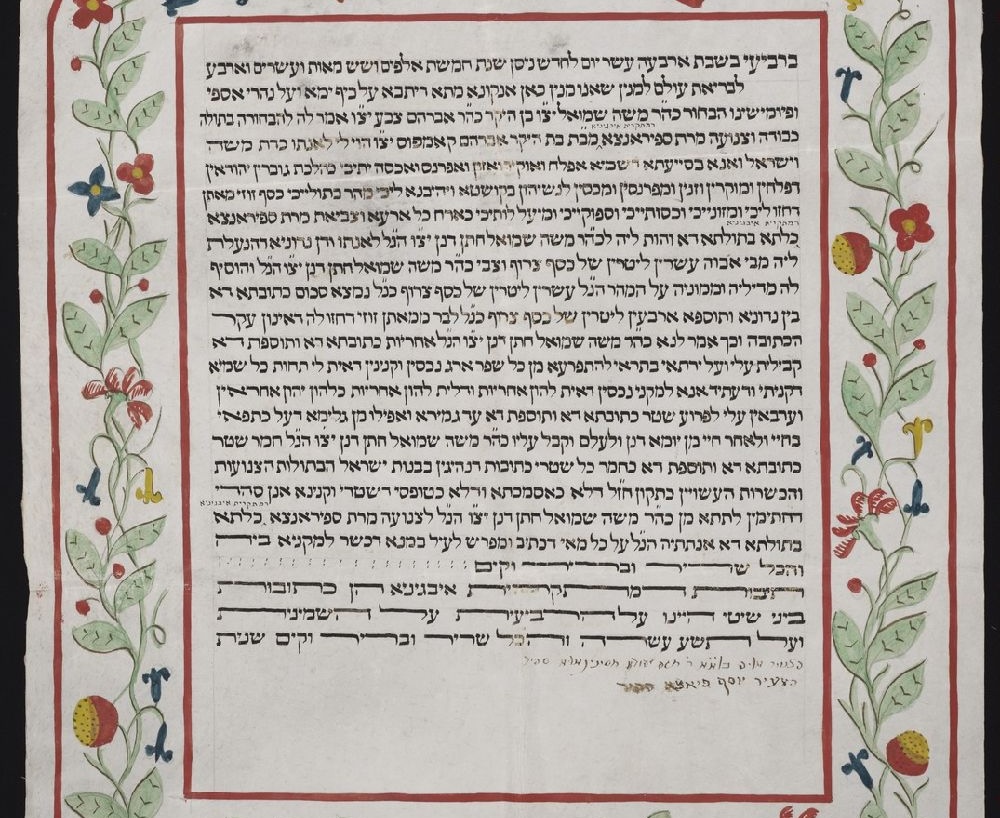 ברביעי בשבת ארבעה עשר יום לחדש ניסן שנת חמשת אלפים ושש מאות ועשרים וארבע
לבריאת עולם למנין שאנו מנין כאן אנקונא מתא דיתבא על כיף ימא ועל נהרי אספי
ופיומיסינו הבחור כה״ר משה שמואל יצ״ו בן היקר כה״ר אברהם צבע יצ״ו אמר לה להבחורה בתולה
דמתקרית איבגיניא
כבודה וצנועה מרת ספיראנצא מב״ת בת היקר אברהם קאמפוס יצ״ו הוי לי לאנתו כדת משה
וישראל ואנא בסייעתא דשמיא אפלח ואוקיר ואזון ואפרנס ואכסה יתיכי כהלכת גוברין יהודאין
דפלחין ומוקרין וזנין ומפרנסין ומכסין לנשיהון בקושטא ויהיבנא ליכי מהר בתולייכי כסף זוזי מאתן
דחזו ליכי ומזונייכי וכסותייכי וספוקייכי ומיעל לותיכי כאורח כל ארעא וצביאת מרת ספיראנצא
דמתקרית איבגיניא
כלתא בתולתא דא והות ליה לכה״ר משה שמואל חתן דנן יצ״ו הנ״ל לאנתו ודן נדוניא דהנעלת
ליה מבי אבוה עשרין ליטרין של כסף צרוף וצבי כה״ר משה שמואל חתן דנן יצ״ו הנ״ל והוסיף
לה מדיליה וממוניה על המהר הנ״ל עשרין ליטרין של כסף צרוף כנ״ל נמצא סכום כתובתא דא
בין נדוניא ותוספא ארבעין ליטרין של כסף צרוף כנ״ל לבר ממאתן זוזי דחזו לה דאינון עקר
הכתובה וכך אמר לנא כה״ר משה שמואל חתן דנן יצ״ו הנ״ל אחריות כתובתא דא ותוספת דא
קבילית עלי ועל ירתאי בתראי להתפרעא מן כל שפר ארג נכסין וקנינין דאית לי תחות כל שמיא
דקניתי ודעתיד אנא למקני נכסין דאית להון אחריות ודלית להון אחריות כלהון יהון אחראין
וערבאין עלי לפרוע שטר כתובתא דא ותוספת דא עד גמירא ואפילו מן גלימא דעל כתפאי
בחיי ולאחר חיי מן יומא דנן ולעלם וקבל עליו כה״ר משה שמואל חתן דנן יצ״ו הנ״ל חמר שטר
כתובתא דא ותוספת דא כחמר כל שטרי כתובות דנהיגין בבנות ישראל הבתולות הצנועות
והכשרות העשויין כתקון חז״ל דלא כאסמכתא ודלא כטופסי דשטרי וקנינא אנן סהדי
דמתקרית איבגיניא
דחתימין לתתא מן כה״ר משה שמואל חתן דנן יצ״ו הנ״ל לצנועה מרת ספיראנצא כלתא
בתולתא דא אנתתיה הנ״ל על כל מאי דכתיב ומפרש לעיל במנא דכשר למקניא ביה
והכל שריר ובריר וקים
תיבות דמתקרית איבגיניא הן כתובות
ביני שיטי היינו על הרביעית על השמינית
ועל התשע עשרה והכל שריר ובריר וקים שנית
הצעיר יוסף